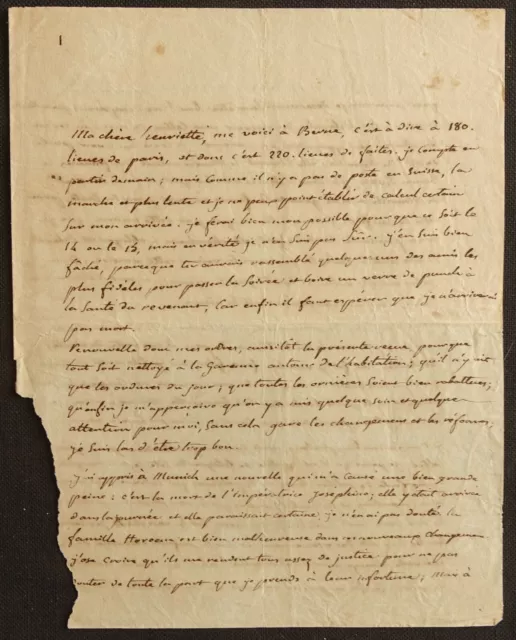 1
Ma chère henriette, me voici à Berne, c'est à dire à 180.
lieues de paris, et donc c'est 220. lieues de faites. je compte en
partir demain; mais comme il n'y a pas de poste en Suisse, la
marche est plus lente et je ne peux point établir de calcul certain
sur mon arrivée. je ferai bien mon possible pour que ce soit le
14 ou le 15, mais en vérité je n'en suis pas sûr. j'en suis bien
fâché, parceque tu aurais rassemblé quelques uns des amis les
plus fidèles pour passer la Soirée et boire un verre de punch à
la Santé du revenant, Car enfin il faut espérer que je n'arriverai
pas mort.
Renouvelle donc mes ordres, aussitôt la présente reçue pour que
tout soit nettoyé à la Garenne autour de l'habitation; qu'il n'y ait
que les ordures du jour; que toutes les ornières soient bien rabattues;
qu'enfin je m'apperçoive qu'on y a mis quelque soin et quelque
attention pour moi, Sans cela gare les changements et les réformes,
je suis las d'être trop bon.
J'ai appris à Munich une nouvelle qui m'a causé une bien grande
peine: c'est la mort de l'Impératrice Joséphine; elle y était arrivée
dans la journée et elle paraissait certaine. je n'en ai pas douté. la
famille est bien malheureuse dans ces nouveaux changemens.
j'ose croire qu'ils me rendent tous assez de justice pour ne pas
douter de toute la part que je prends à leur infortune;